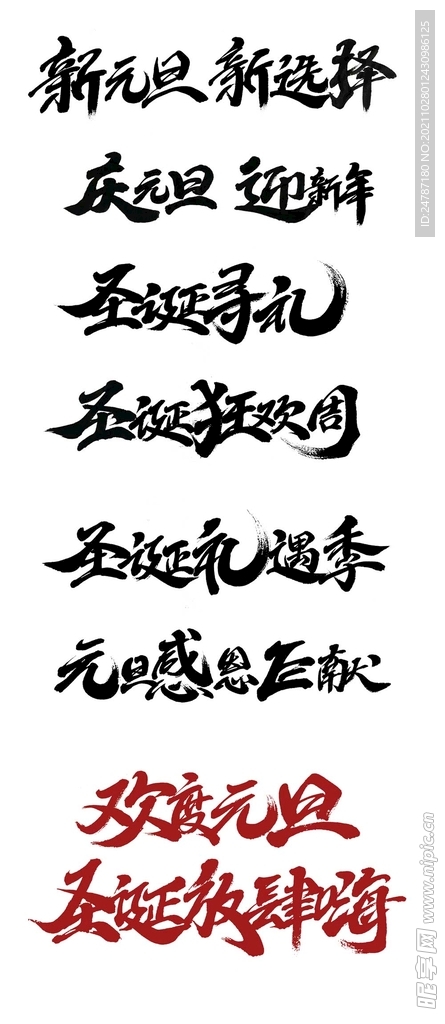 新元旦 新选择
庆元旦 迎新年
圣诞寻礼
圣诞狂欢周
圣诞礼遇季
元旦感恩巨献
欢度元旦
圣诞放肆嗨
ID:24787180 NO:20211028012430986125
昵享网 www.nipic.cn